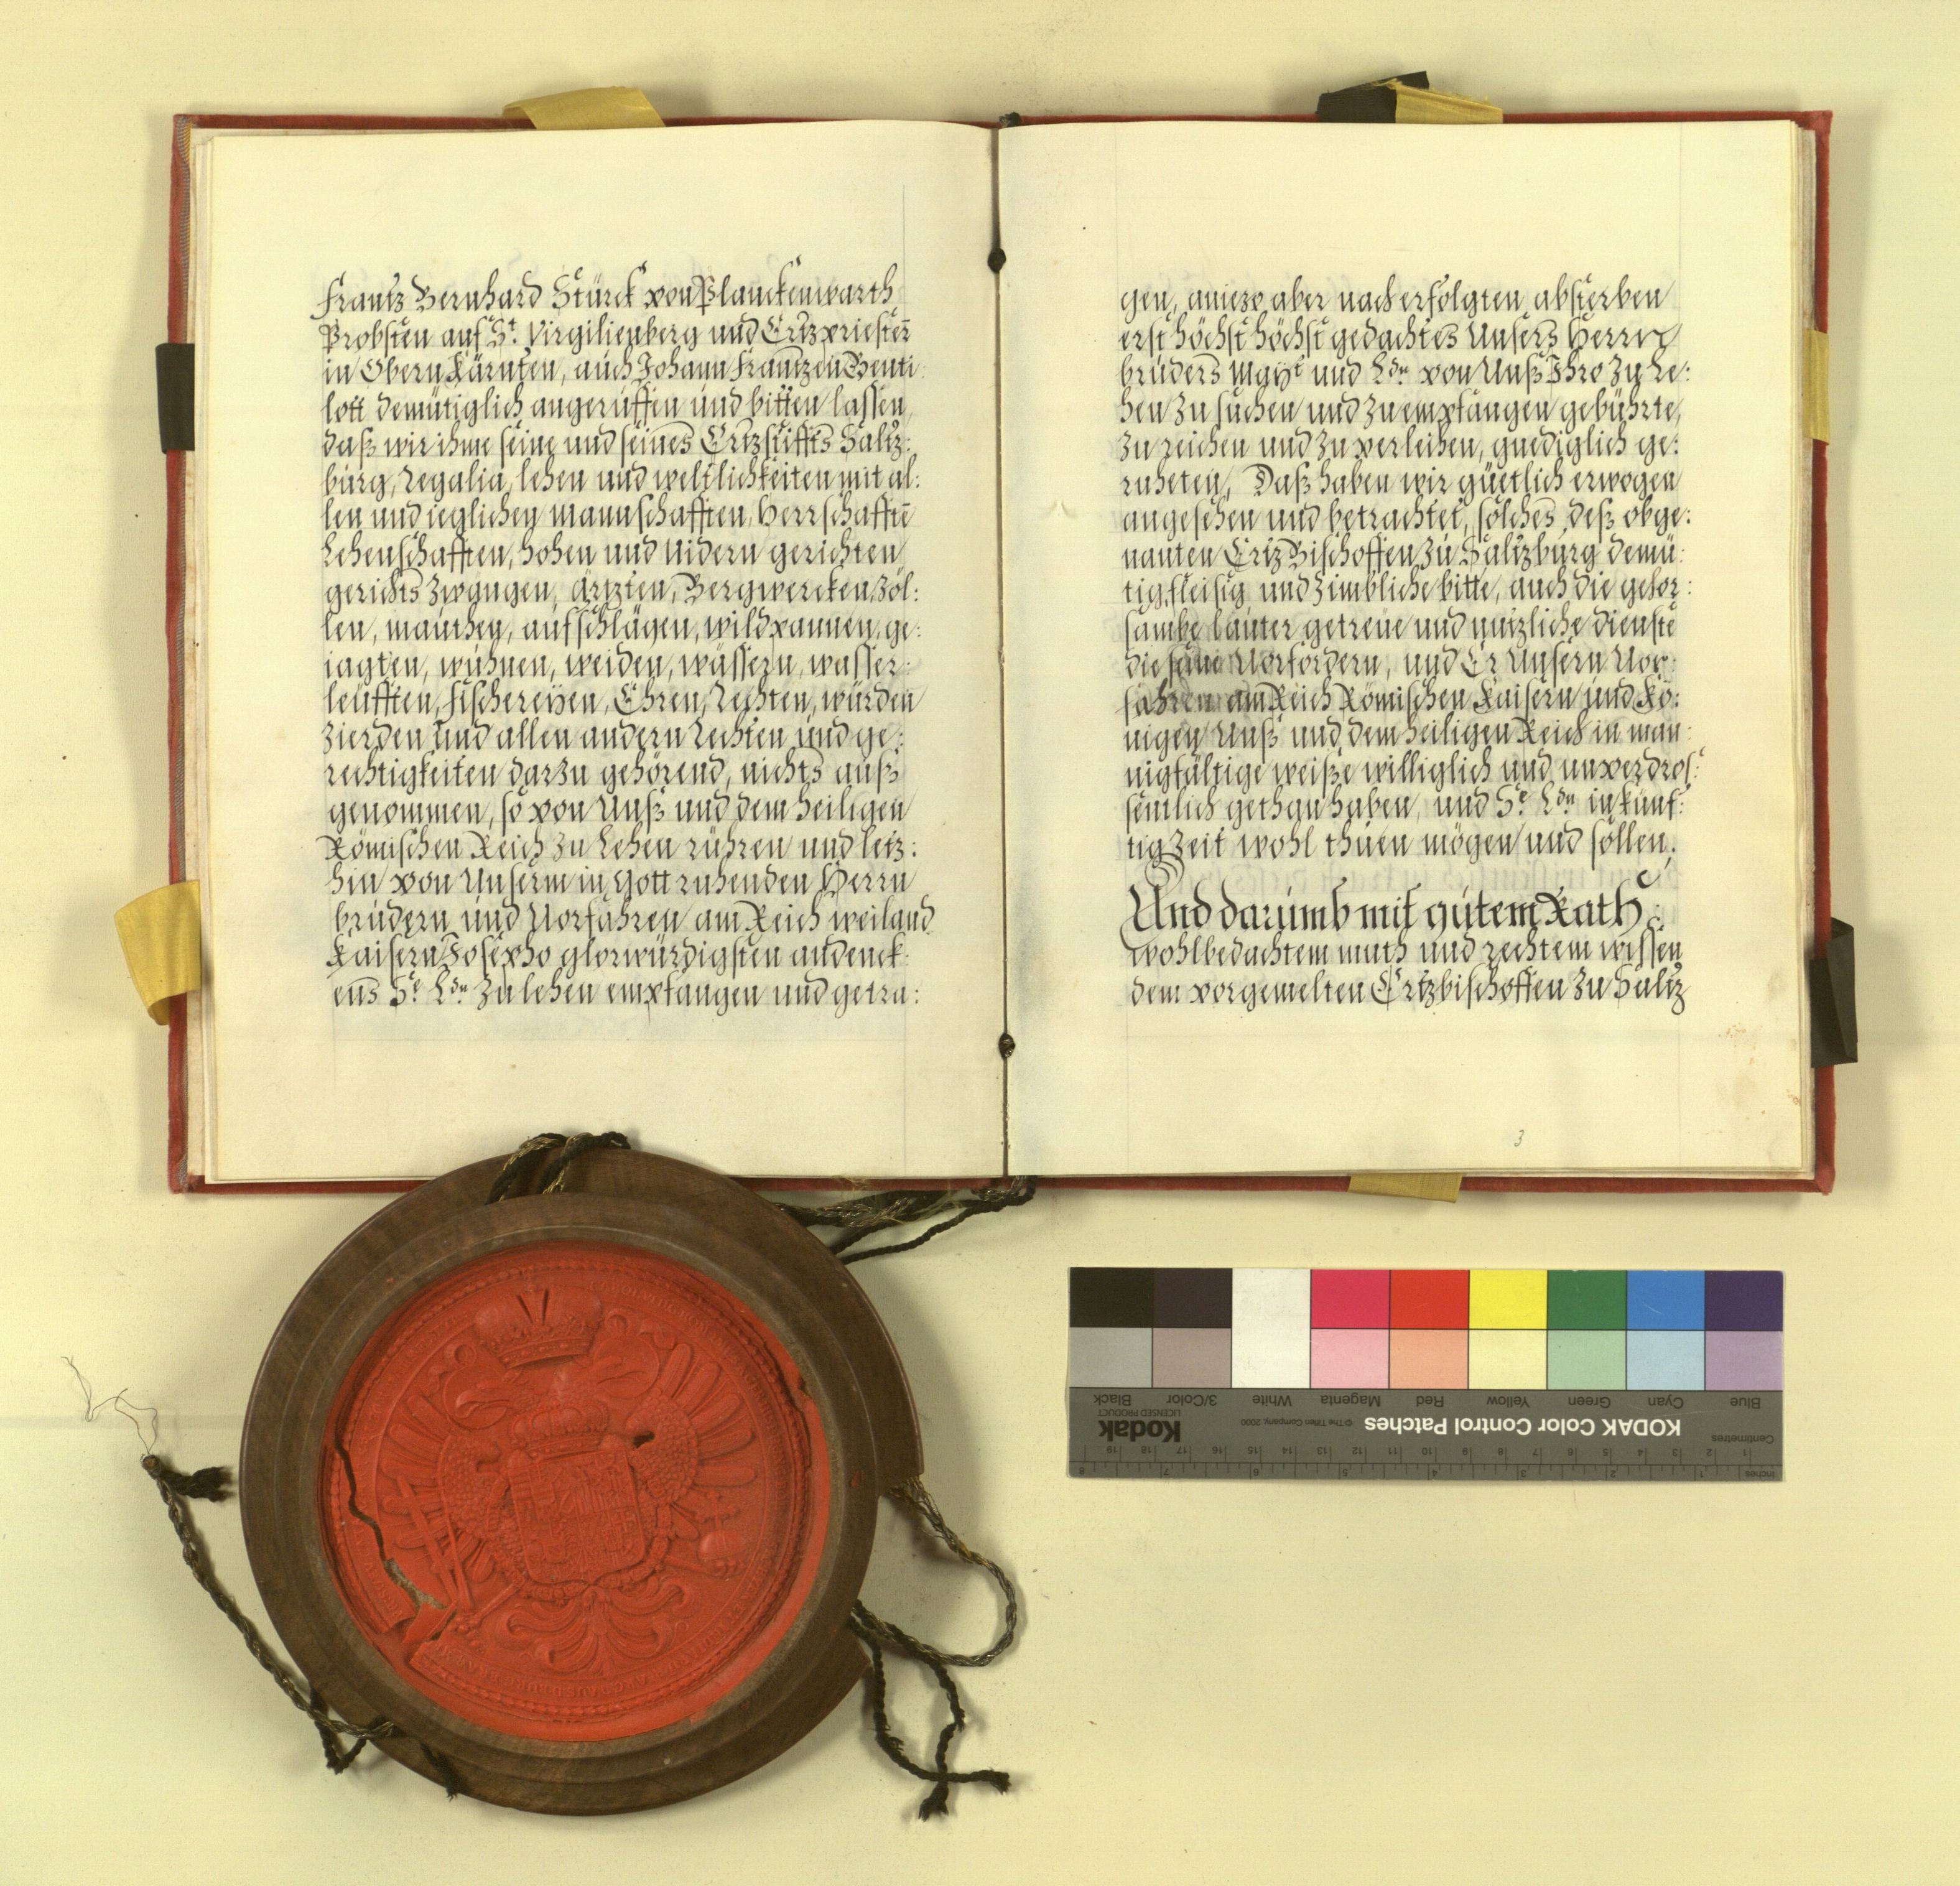 Frantz Bernhard Stürck von Planckenwarth
Probsten auf St. Virgilienberg und Ertzpriestern
in Obern Kärnten, auch Johann Frantzen Genti:
lott demütiglich angeruffen und bitten lassen,
daß wir ihme seine und seines Ertzstiffts Saltz:
burg, Regalia, lehen und weltlichkeiten mit al:
len und ieglichen mannschafften, Herrschafftē
Lehenschafften, hohen und nidern gerichten,
gerichts zwangen, ärtzten, Bergwercken, zöl:
len, mauthen, aufschlägen, wildpannen, ge:
iagten, wuhnen, weiden, wässern, wasser:
leufften, fischereÿen, Ehren, Rechten, würden
zierden und allen andern Rechten und ge:
rechtigkeiten darzu gehörend, nichts auß
genommen, so von Unß und dem heiligen
Römischen Reich zu Lehen rühren und letz:
hin von Unserm in Gott ruhenden Herrn
brudern und Vorfahren am Reich weiland
Kaisern Josepho glorwürdigsten andenck:
ens Se. Ldn. zu lehen empfangen und getra:
gen, aniezo aber nach erfolgten absterben
erst höchst höchst gedachtes Unsers Herrn
bruders Maÿt und Ldn von Unß Ihro zu Le:
hen zu suchen und zu empfangen gebührte,
zu reichen und zu verleihen, gnediglich ge:
ruheten, Daß haben wir güetlich erwogen
angesehen und betrachtet, solches deß obge:
nanten Ertz Bischoffen zu Saltzburg demü:
tig, fleisig und zimbliche bitte, auch die gehor:
sambe lauter getreue und nutzliche dienste
die seine Vorfordern, und Er Unsern Vor:
fahren am Reich Römischen Kaisern und Kö:
nigen Unß und dem heiligen Reich in man:
nigfältige weiße williglich und unverdros:
sentlich gethan haben, und Se Ldn in künf:
tig Zeit wohl thuen mögen und sollen.
Und darumb mit gutem Rath
wohlbedachtem muth und rechtem wissen
dem vorgemelten Ertzbischoffen zu Saltz
3
Blue Cyan Green Yellow Red Magenta White 3/Color Black
KODAK Color Control Patches © The Tiffen Company, 2000 Kodak
LICENSED PRODUCT
Centimetres 1 2 3 4 5 6 7 8 9 10 11 12 13 14 15 16 17 18 19
Inches 1 2 3 4 5 6 7 8